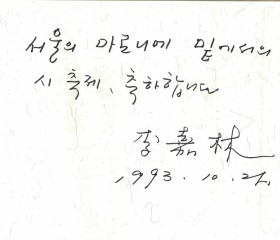 서울의 마로니에 밑에서의
시 축제, 축하합니다
李嘉林
1993. 10. 21.